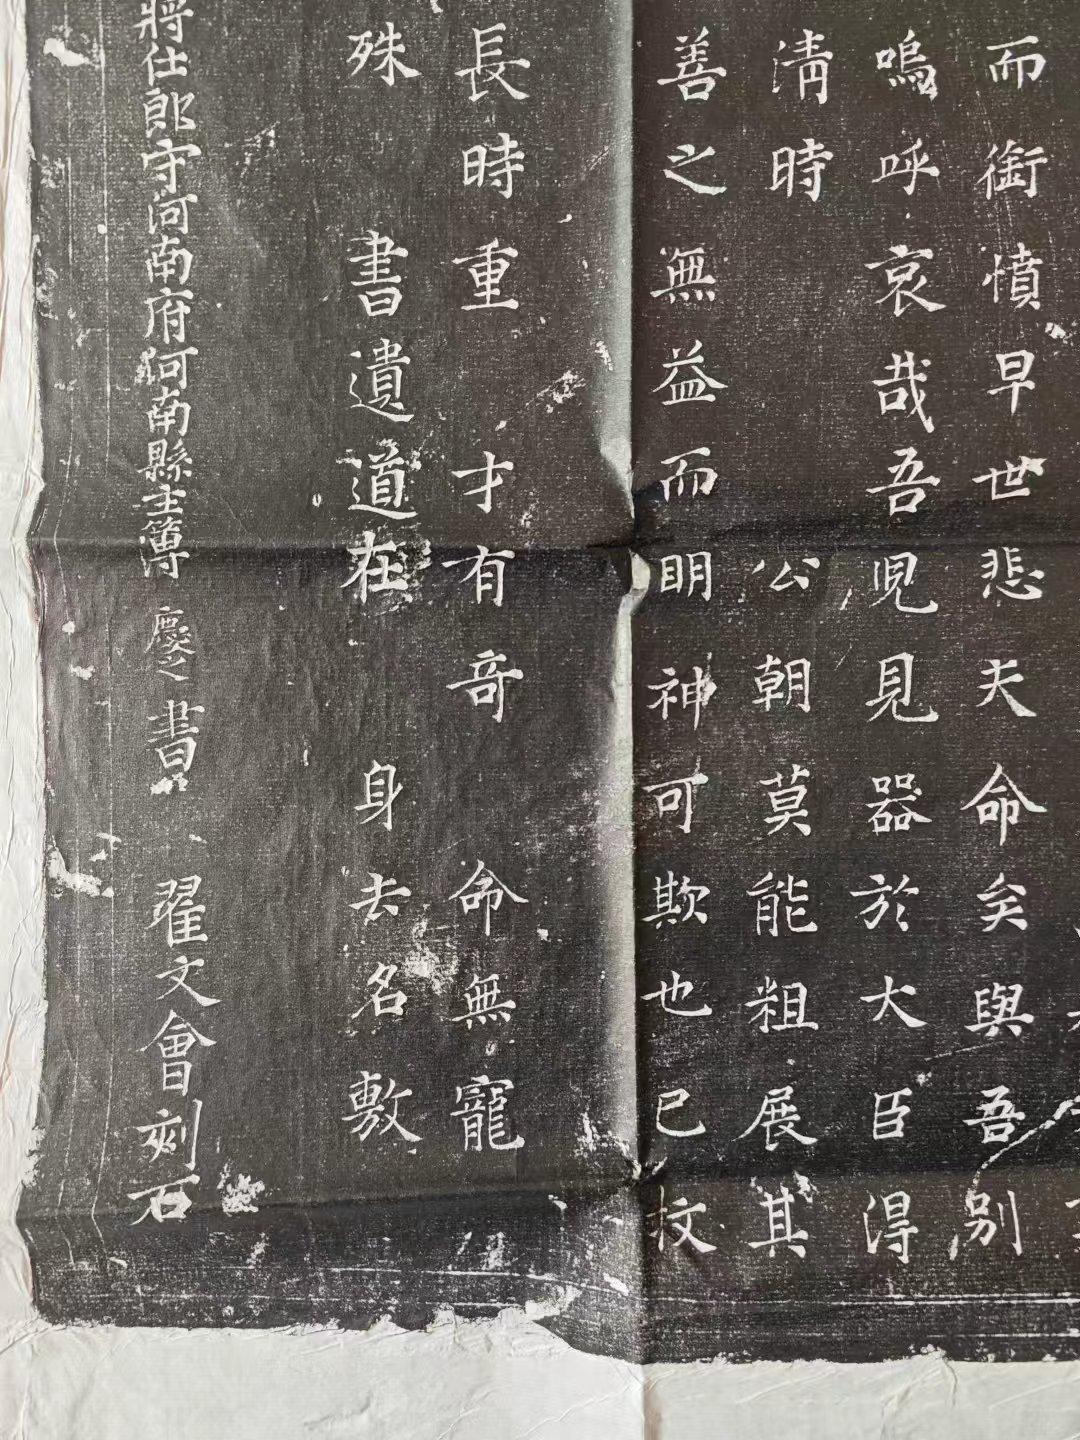 而銜憤早世悲夫命矣與吾別
嗚呼哀哉吾児見器於大臣得
清時公朝莫能粗展其
善之無益而明神可欺也已
長時重才有奇命無寵
殊書遺道在身去名敷
將仕郎守河南府河南縣主簿慶之書翟文會刻石